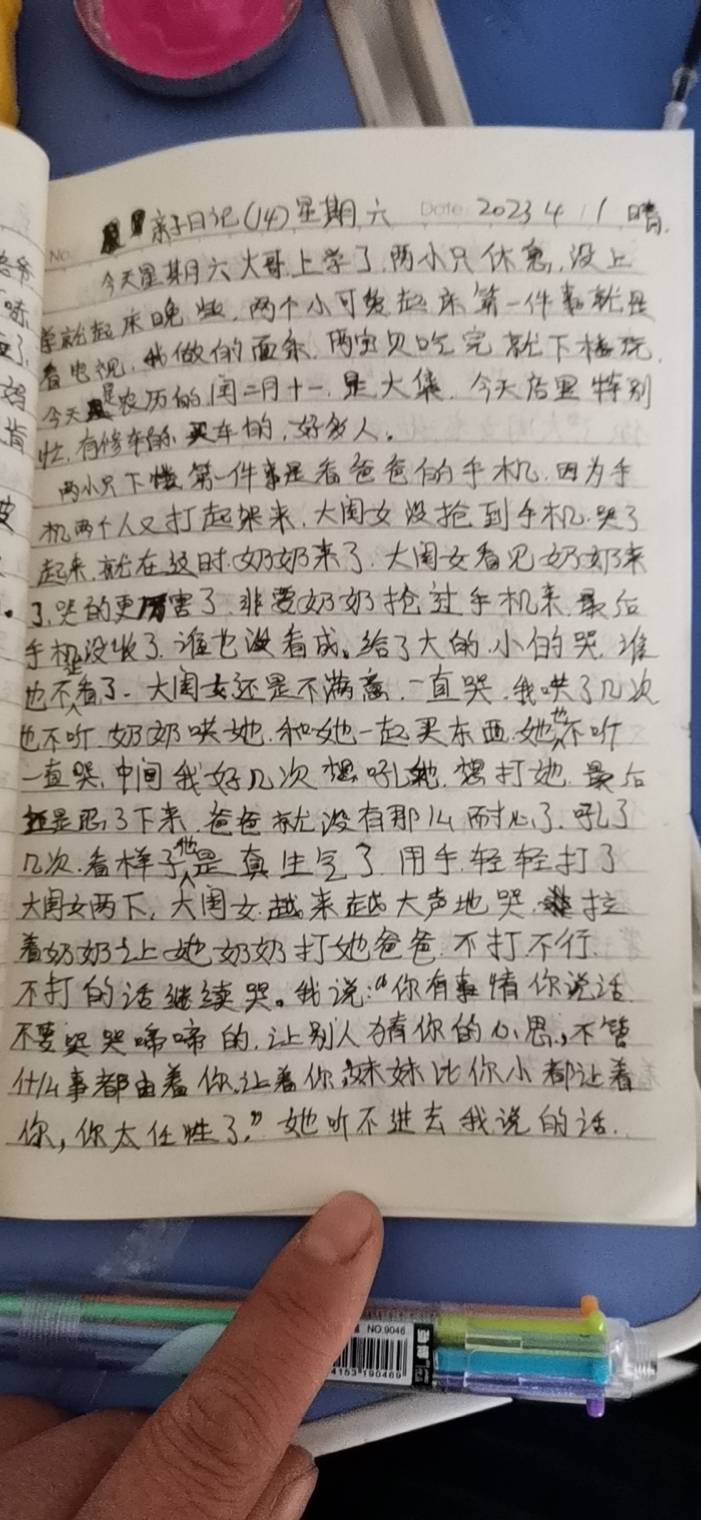 亲子日记(14)星期六 Date 2023 4 1 晴.
No.
今天星期六大哥上学了,两小只休息,没上
学就起床晚些,两个小可爱起床第一件事就是
看电视,我做的面条,两宝贝吃完就下楼玩.
今天是农历的闰二月十一,是大集,今天店里特别
忙,有修车的,买车的,好多人。
两小只下楼第一件事是看爸爸的手机,因为手
机两个人又打起架来,大闺女没抢到手机,哭了
起来,就在这时,奶奶来了,大闺女看见奶奶来
了,哭的更厉害了,非要奶奶抢过手机来,最后
手机没收了,谁也没看成。给了大的,小的哭,谁
也不是看了.大闺女还是不满意,一直哭,我哄了几次
也不听,奶奶哄她,和她一起买东西,她也不听
一直哭,中间我好几次想吼她,想打她,最后
还是忍了下来,爸爸就没有那么耐心了,吼了
几次,看样子他是真生气了,用手轻轻打了
大闺女两下,大闺女越来越大声地哭,拉
着奶奶让她奶奶打她爸爸,不打不行,
不打的话继续哭。我说:“你有事情你说话
不要哭哭啼啼的,让别人猜你的心思,不管
什么事都由着你,让着你,妹妹比你小都让着
你,你太任性了,”她听不进去我说的话.
爷
味
了
鸡
肯
皮
NO.9046
4153 190469